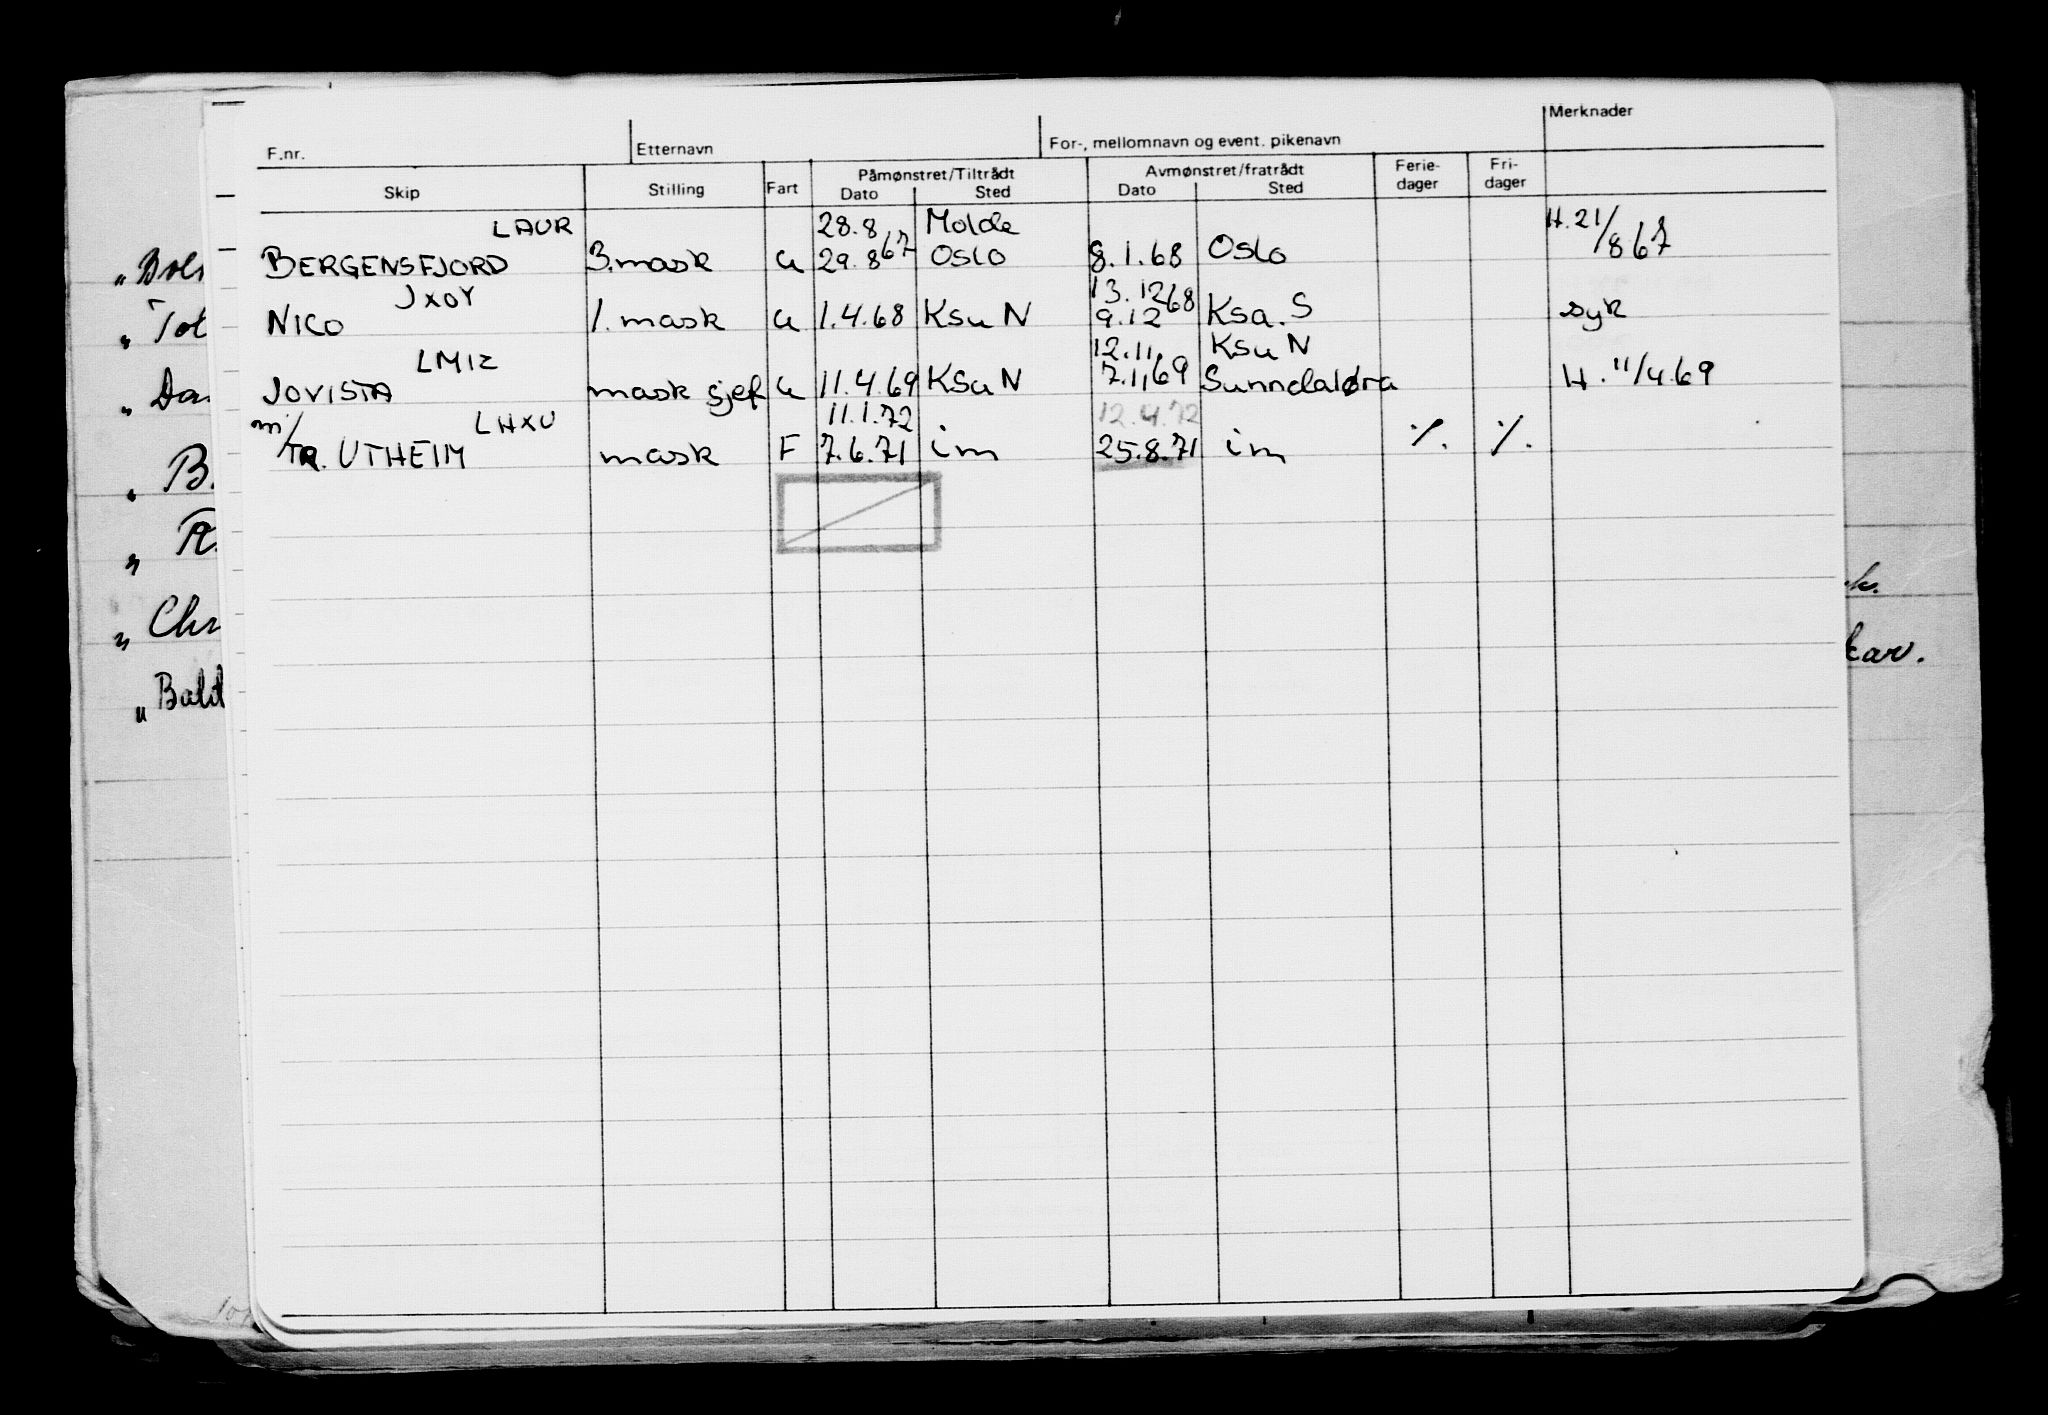 Merknader
F.nr. Etternavn For-, mellomnavn og event. pikenavn
Skip Stilling Fart Påmønstret/Tiltrådt Avmønstret/fratrådt Ferie- Fri-
Dato Sted Dato Sted dager dager
LAUR 28.8 Molde H. 21/8 67
BERGENSFJORD 3.mask u 29.8 67 OSLO 8.1.68 Oslo
JXOY 13.12 68
NICO 1. mask u 1.4.68 Ksu N 9.12 Ksa. S syk
LMIZ 12.11 Ksu N
JOVISTA mask sjef u 11.4.69 KSu N 7.11 69 Sunndaløra H. 11/4.69
m/ LHXU 11.1.72 12.4.72
TR. UTHEIM mask F 7.6.71 im 25.8.71 im ٪. ٪.
„ Tot
„ Dan
„ B.
„ Chr
„ Bald
kar.